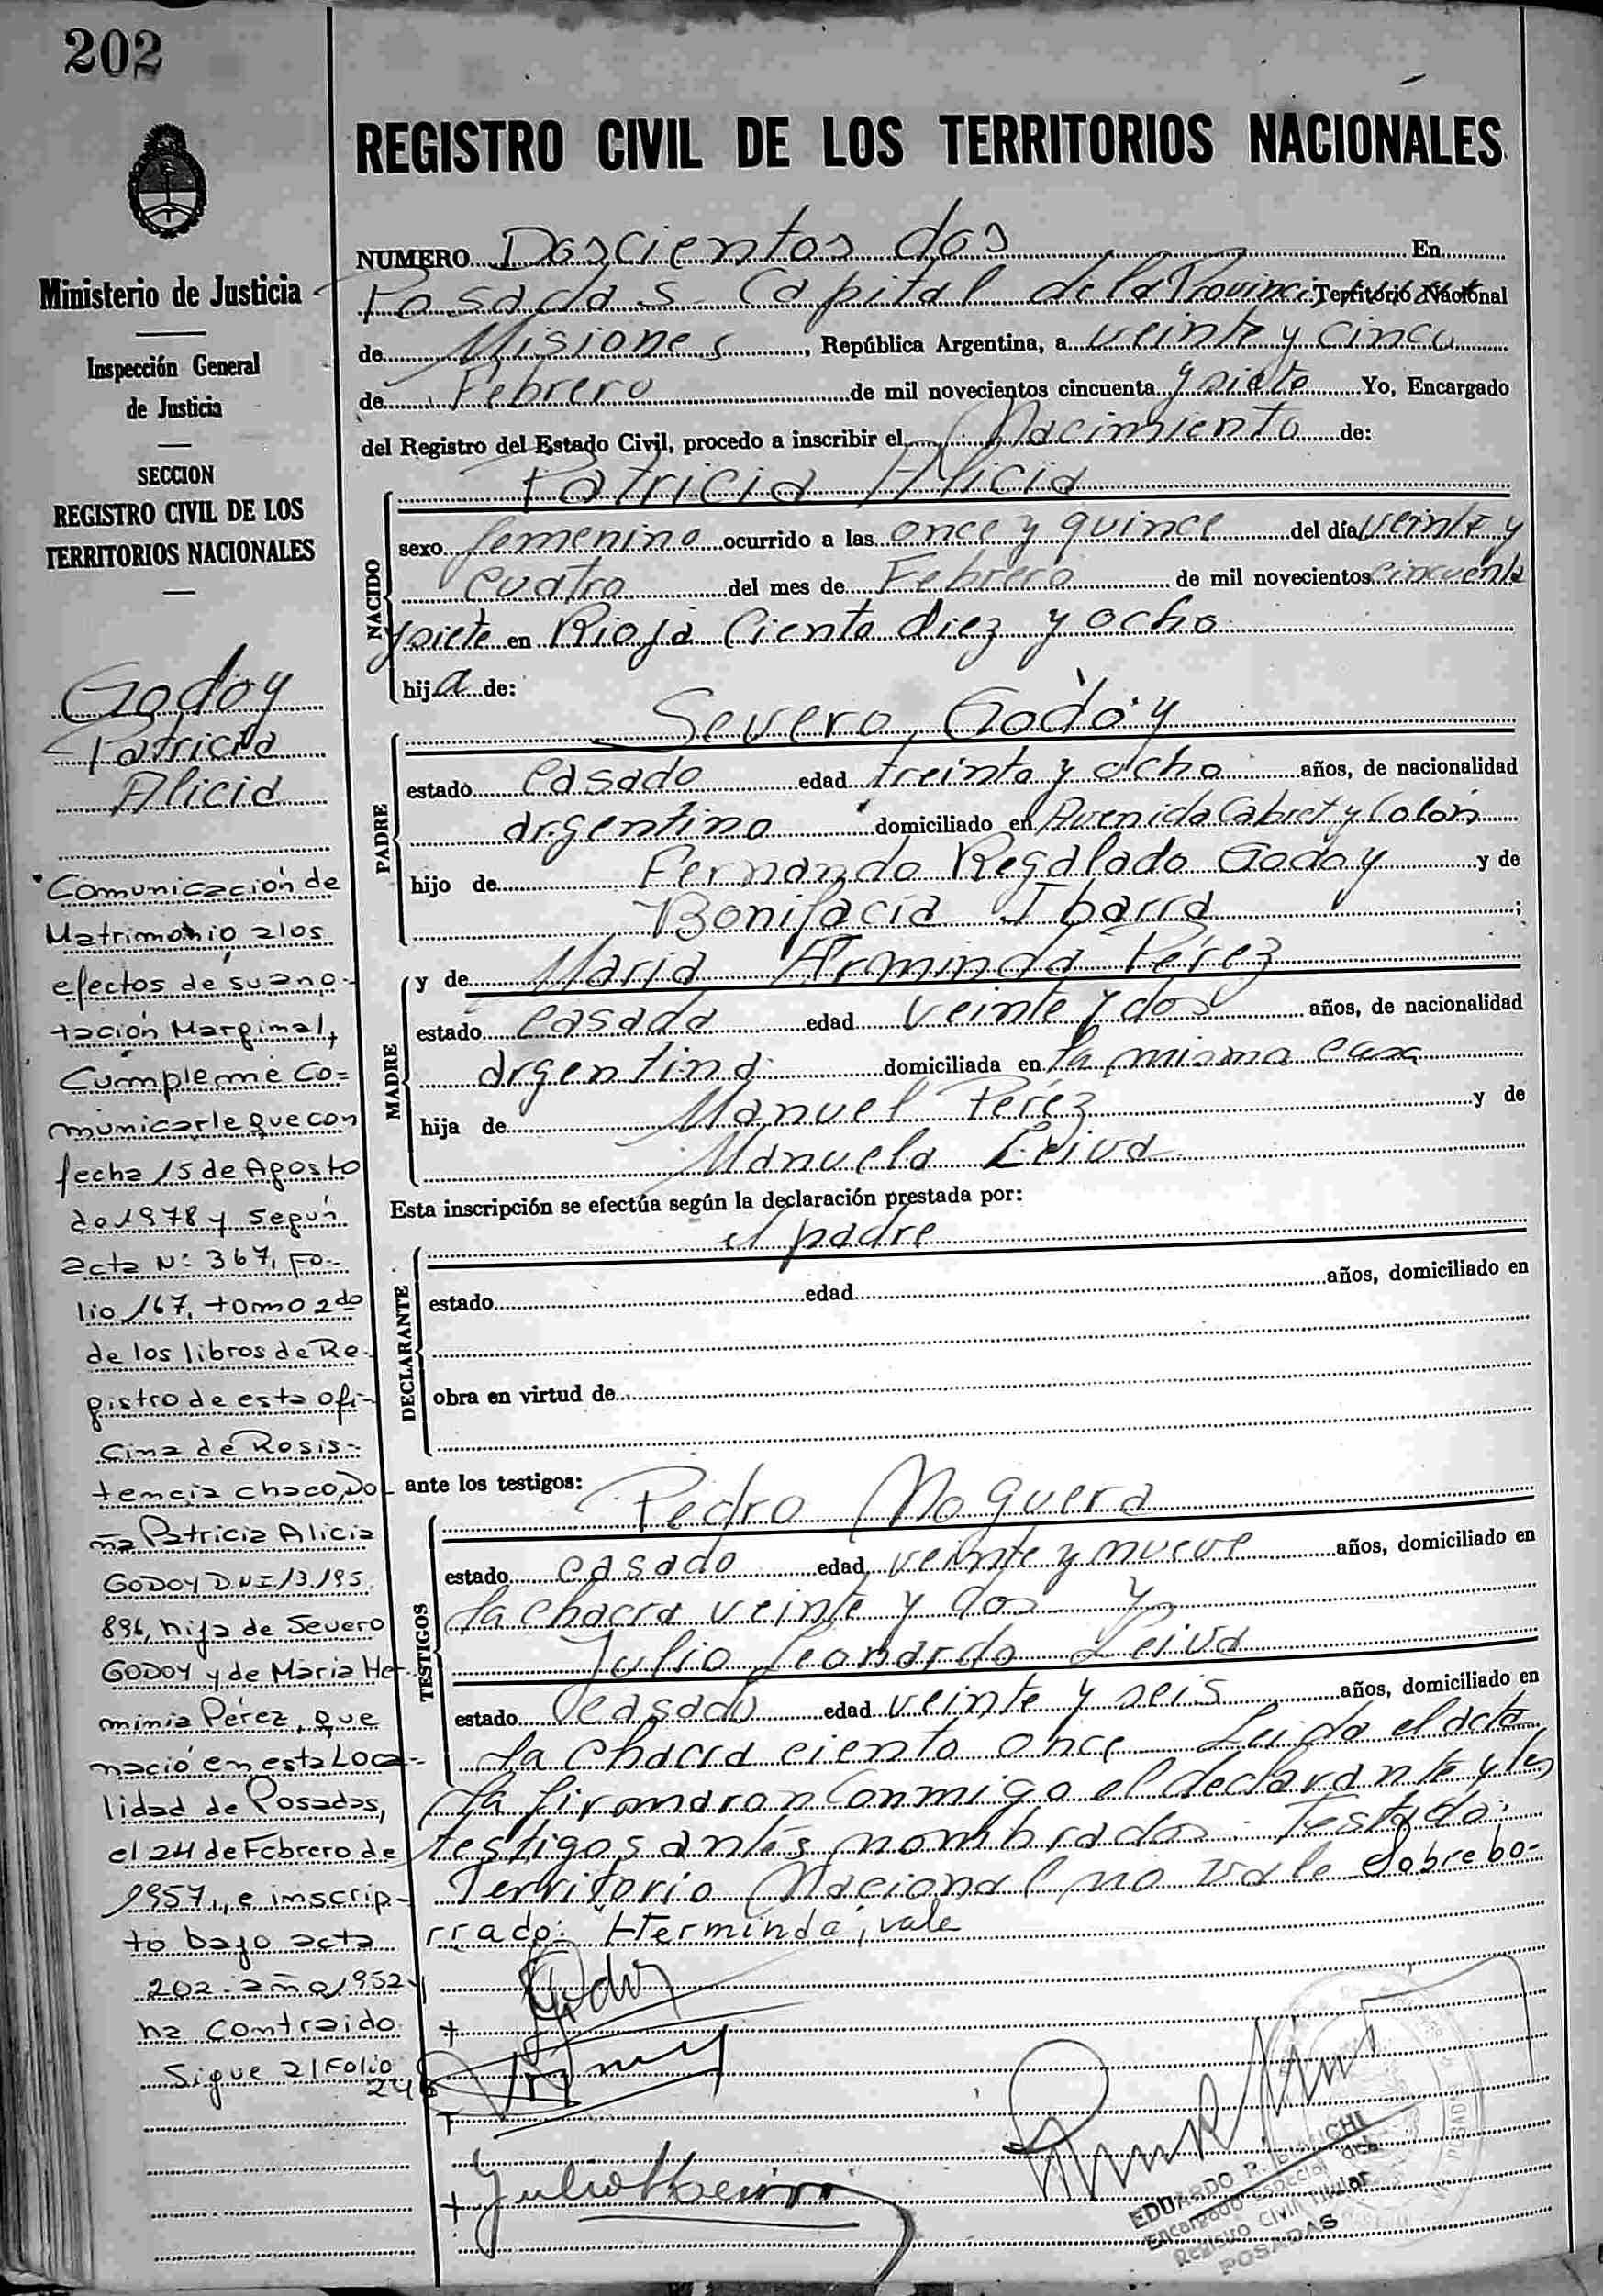 202
Ministerio de Justicia
Inspección General
de Justicia
SECCION
REGISTRO CIVIL DE LOS
TERRITORIOS NACIONALES
Godoy
Patricia
Alicia
Comunicación de
Matrimonio a los
efectos de su ano-
tación Marginal,
Cumpleme Co=
municarle que con
fecha 15 de Agosto
de 1978 y según
acta N: 367, Fo-
lio 167, tomo 2do
de los libros de Re-
gistro de esta ofi-
cina de Resis-
tencia chaco, Do-
ña Patricia Alicia
GODOY D.N.I 13.195.
896, hija de Severo
GODOY y de Maria Her-
minia Pérez, que
nació en esta Loca-
lidad de Posadas,
el 24 de Febrero de
1957, e inscrip-
to bajo acta
202. año 1952
ha contraido
Sigue 2/ Folio
248
REGISTRO CIVIL DE LOS TERRITORIOS NACIONALES
NUMERO Doscientos dos En
Posadas Capital de la Provincia Territorio Nacional
de Misiones, República Argentina, a veinte y cinco
de Febrero de mil novecientos cincuenta y siete Yo, Encargado
del Registro del Estado Civil, procedo a inscribir el Nacimiento de:
NACIDO
Patricia Alicia
sexo femenino ocurrido a las once y quince del día veinte y
cuatro del mes de Febrero de mil novecientos cincuenta
y siete en Rioja Ciento diez y ocho
hija de:
PADRE
Severo Godoy
estado casado edad treinta y ocho años, de nacionalidad
argentino domiciliado en Avenida Cabret y Colón
hijo de Fernando Regalado Godoy y de
Bonifacia Ibarra;
MADRE
y de Maria Arminda Pérez
estado casada edad veinte y dos años, de nacionalidad
argentina domiciliada en la misma casa
hija de Manuel Pérez y de
Manuela Leiva
Esta inscripción se efectúa según la declaración prestada por:
DECLARANTE
el padre
estado edad años, domiciliado en
obra en virtud de
ante los testigos:
TESTIGOS
Pedro Noguera
estado casado edad veinte y nueve años, domiciliado en
la chacra veinte y dos y
Julio Leonardo Leiva
estado casado edad veinte y seis años, domiciliado en
la chacra ciento once Leida el acta
la firmaron conmigo el declarante y los
testigos antes nombrados. Testado:
Territorio Nacional no vale Sobrebo-
rrado: "Herminda", vale
EDUARDO P.
Encargado Especial del
Registro Civil Titular
POSADAS